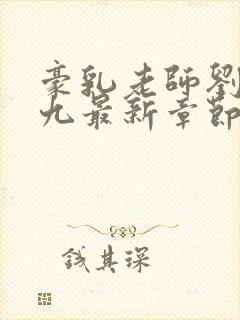 豪乳老師劉
九最新章節
錢其琛